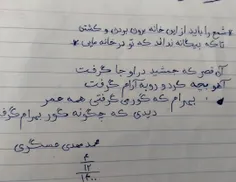 شمع را باید از این خانه برون بردن و کشتن
تا که بیگانه نداند که تو در خانه مایی
آن قصر که جمشید در او جا گرفت
آهو بچه کرد و روبه آرام گرفت
بهرام که گور می گرفتی همه عمر
دیدی که چگونه گور بهرام گرفت
محمد مهدی عسگری
۴
۱۲
۱۴۰۰